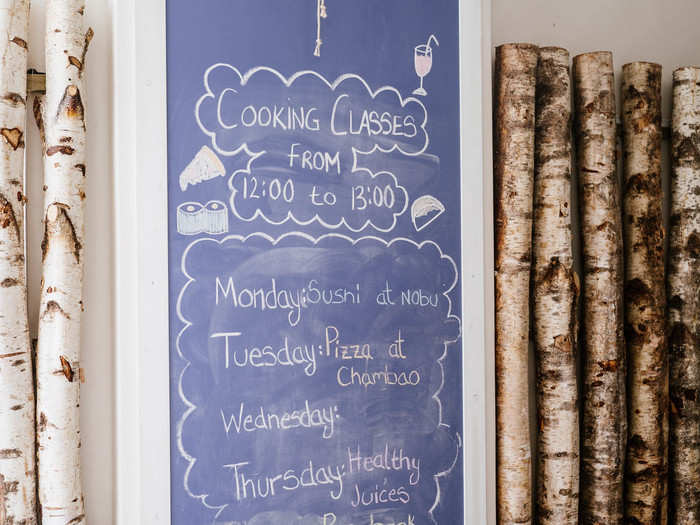 COOKING CLASSES
FROM
12:00 to 13:00
Monday: Sushi at NOBU
Tuesday: Pizza at
Chambao
Wednesday:
Thursday: Healthy
Juices